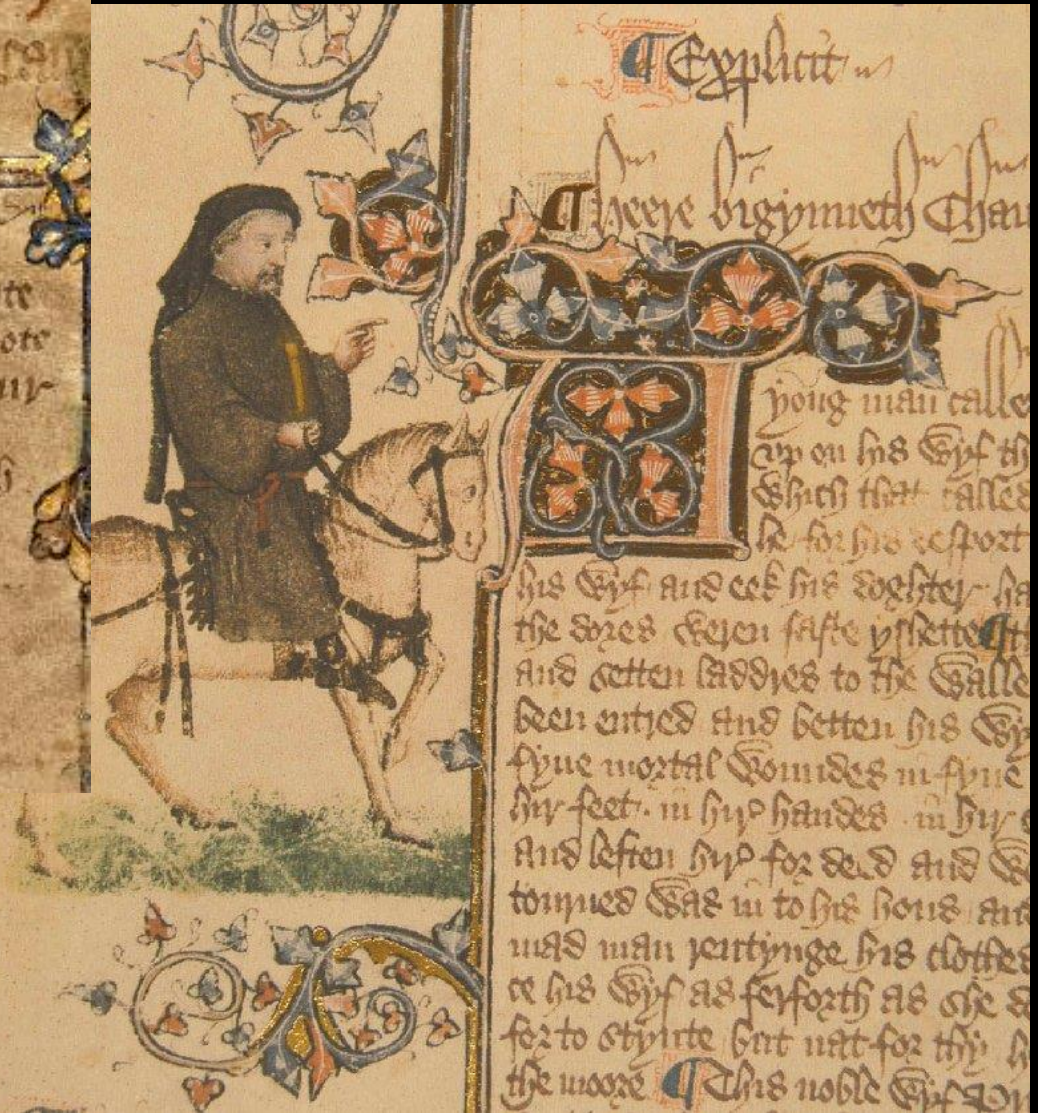 ¶ Explicit
¶ heere bigynneth Chau
yong man calle
up on his wyf th
which that called
he for his desport
his wyf and eek his doghter ha
the dores weren faste yshette ¶ th
and setten laddres to the walle
been entred and betten his wy
fyue mortal woundes in fyue
hir feet· in hir handes · in hir e
and leften hir for deed and we
tourned was in to his hous and
mad man rentynge his clothes
ce his wyf as ferforth as she d
for to stynte but nat for thy h
the moore ¶ This noble wyf
te
ote